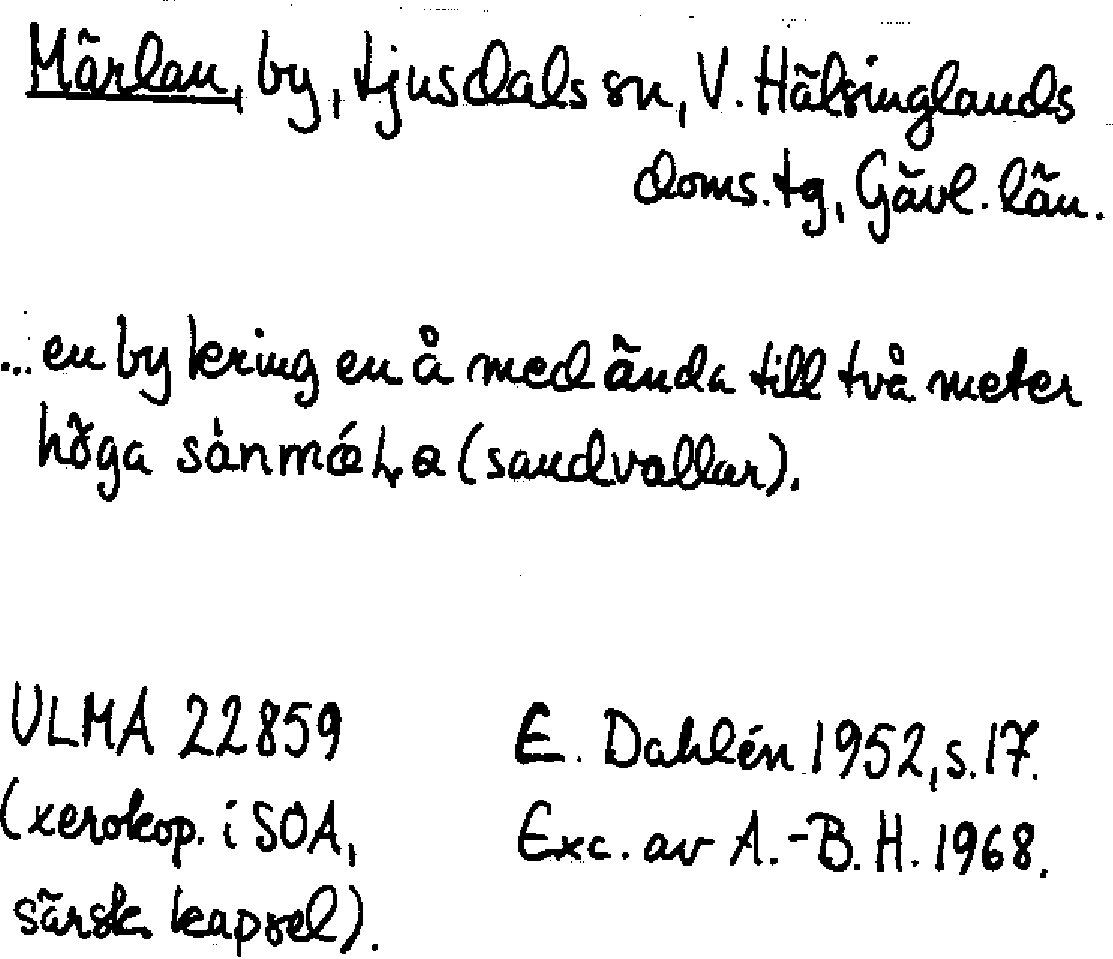 Mårlan, by, Ljusdals sn, V. Hälsinglands
doms.tg, Gävl. län.
... en by kring en å med ända till två meter
höga (sandvallar).
ULMA 22859
(xerokop. i SOA,
särsk. kapsel).
E. Dahlén 1952, s. 17.
Exc. av A.-B. H. 1968.